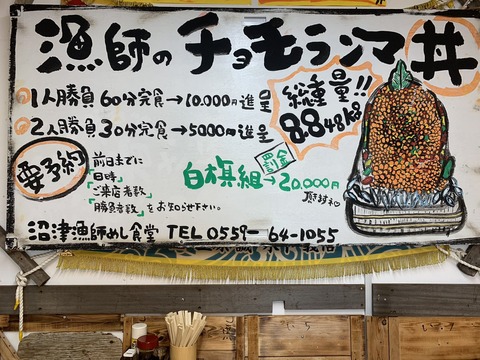 漁師のチョモランマ丼
1人勝負 60分完食→10,000円進呈
2人勝負 30分完食→5000円進呈
総重量!!
8.848kg
要予約
前日までに
「日時」
「ご来店者数」
「勝負者数」をお知らせ下さい。
罰金
白旗組→20,000円
頂戴
沼津漁師めし食堂 TEL 0559-64-1055